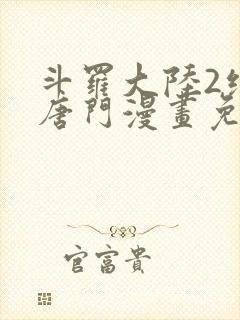 斗羅大陸2
唐門漫畫免
官富貴